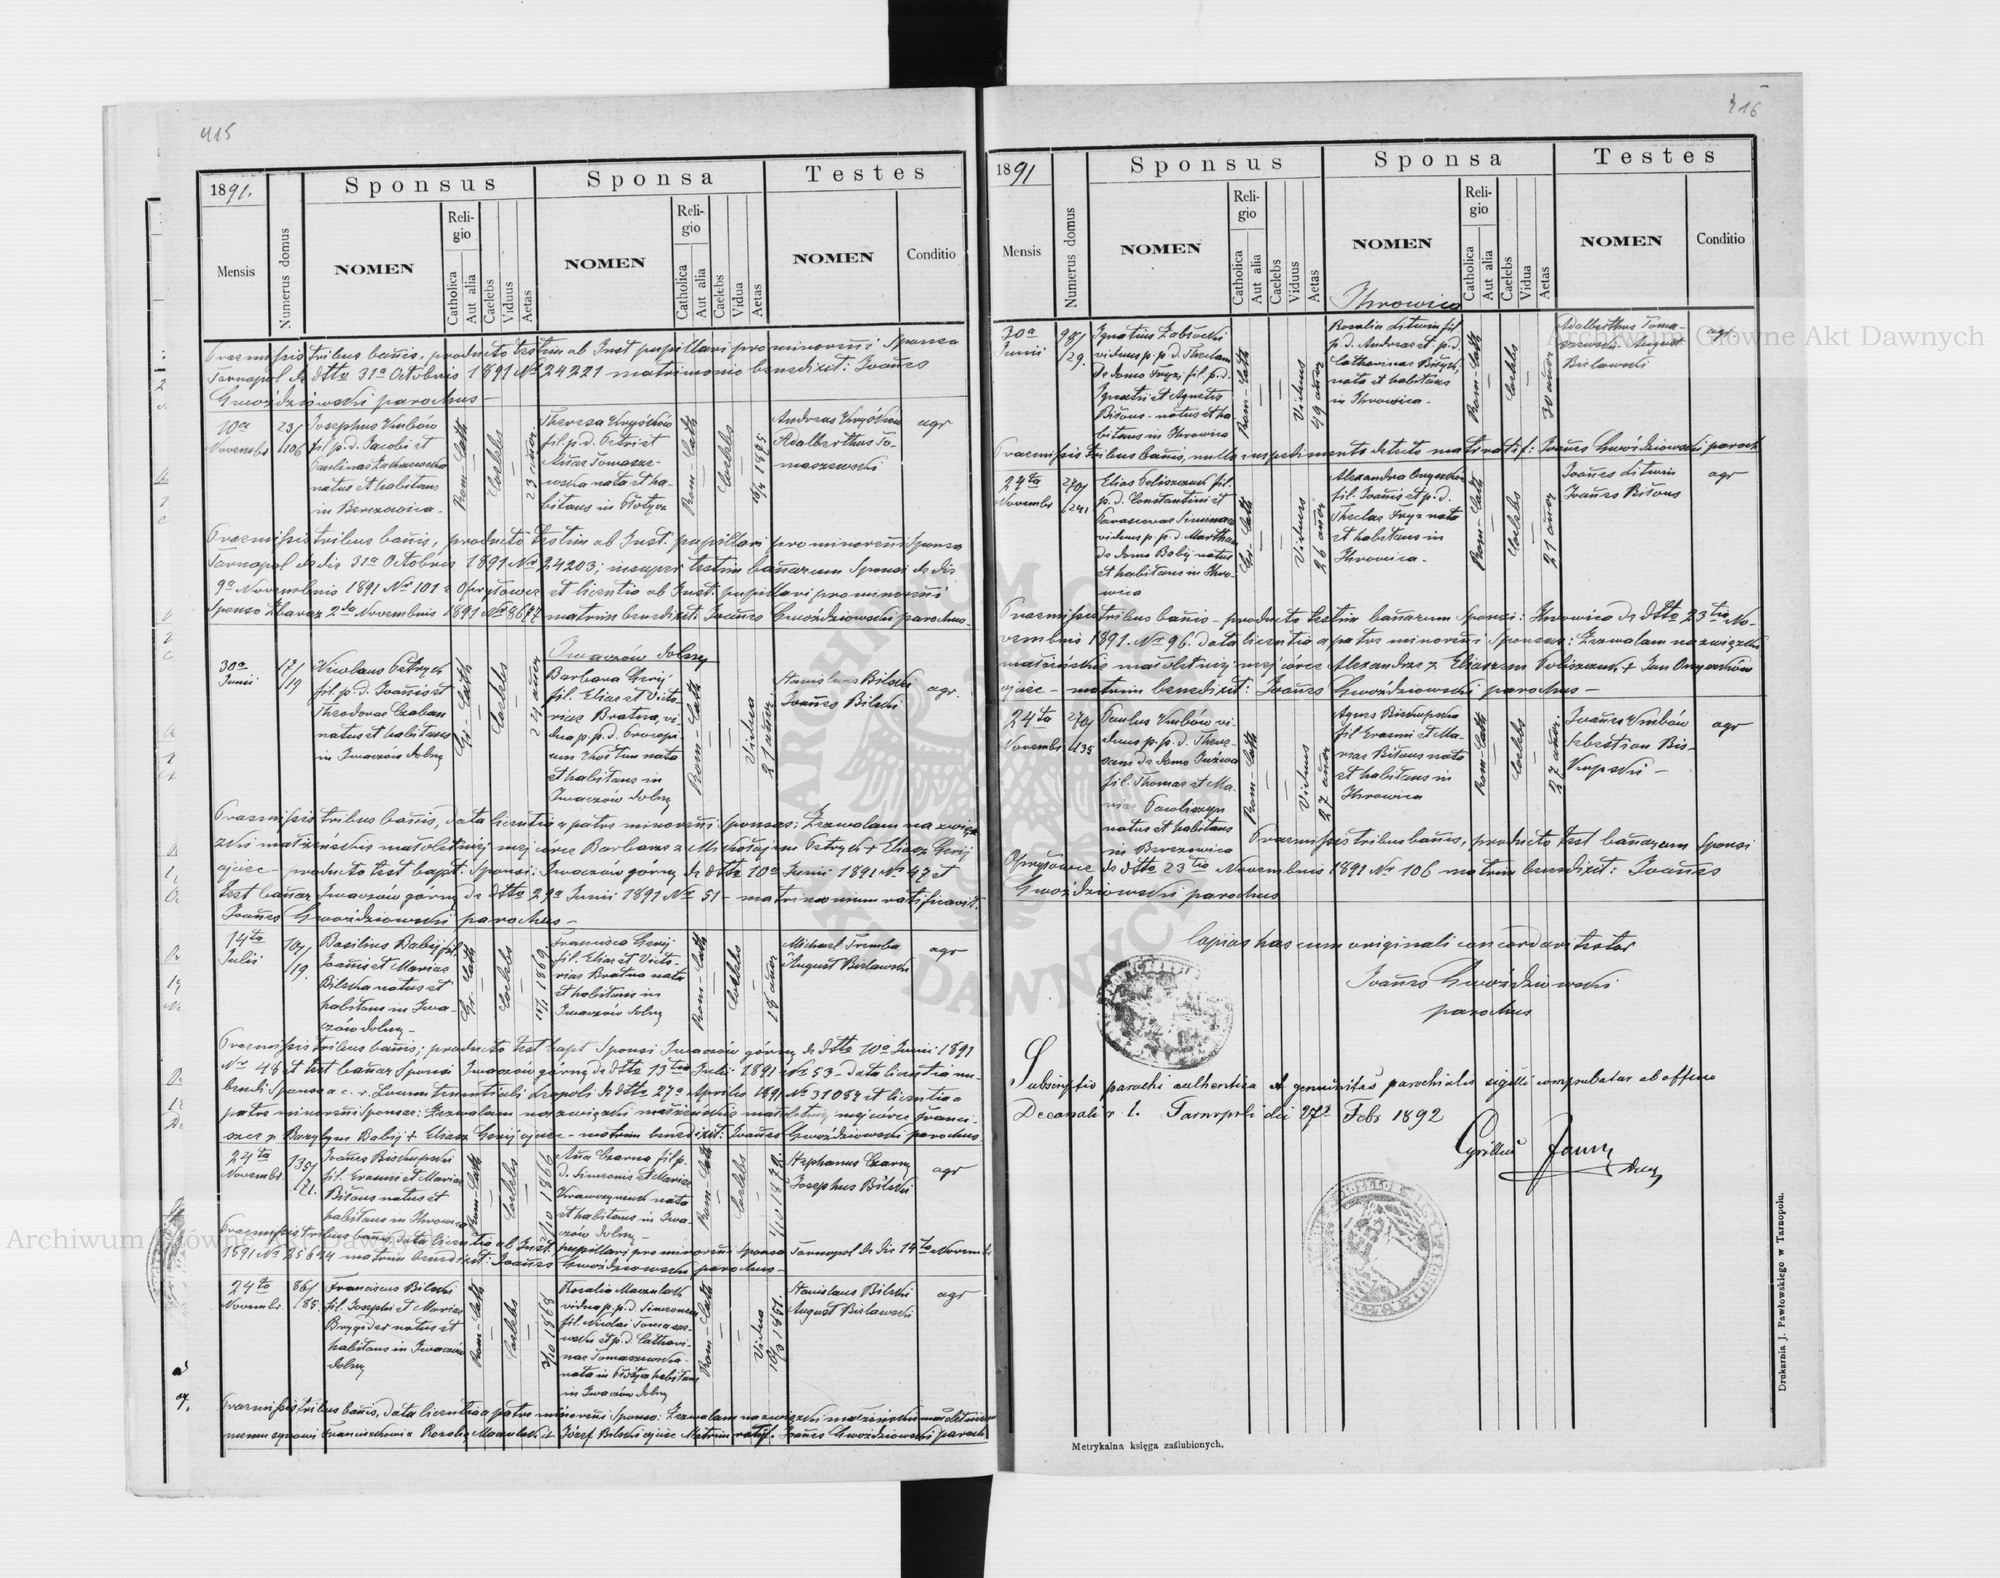 415
1891.
Mensis
Numerus domus
Sponsus
NOMEN
Religio
Catholica
Aut alia
Caelebs
Viduus
Aetas
Sponsa
NOMEN
Religio
Catholica
Aut alia
Caelebs
Vidua
Aetas
Testes
NOMEN
Conditio
Praemissis tribus bañis, producto testim ab Inst pupillari pro minoreñi Sponsa
Tarnopol de dtto 31a Octobris 1891 No 24221 matrimonio benedixit: Joañes
Gwoździowski parochus
10a
Novembr
23/
106
Josephus
fil. p. d. Jacobi et
natus et habitans
in Berezowica
Rom-Cath
Caelebs
23 añor
Theresa
fil. p. d. Petri et
Añae Tomasze-
wska nata et ha-
bitans in Płotycz
Rom-Cath
Caelebs
Andreas
Adalbertus To-
maszewski
agr
Praemissis tribus bañis, producto testim ab Inst. pupillari pro minoreñi Sponsa
Tarnopol de dto 31a Octobris 1891 No 24203; insuper testim bañorum Sponsi de dto
9a Novembris 1891 No 101 z Opryłowiec et licentia ab Inst. pupillari pro minoreñi
Sponso Zbaraz 2da Novembris 1891 No 8677 matrim benedixit: Joañes Gwoździowski parochus
Iwaczów dolny
30a
Junii
17/
19
Nicolaus Petrych
fil. p. d. Joañis et
Theodorae Czaban
natus et habitans
in Iwaczów dolny
Gr-Cath
Caelebs
24 añor
Barbara Gerij
fil. Eliae et Victo-
riae Bratna, vi-
dua p. p. d. Procopi-
um nata
et habitans in
Iwaczów dolny
Rom-Cath
Vidua
21 añor
Stanislaus Bilski
Joañes Bilski
agr.
Praemissis tribus bañis, data licentia a patre minoreñi sponsae: Zezwalam na zwią-
zki małżeńskie małoletniej mej córce Barbarze z Michałajem Petrych + Eliasz Gerij
ojciec – producto test bapt: Sponsi: Iwaczów górny de dtto 10a Junii 1891 No 47 et
test bañor Iwaczów górny de dtto 29a Junii 1891 No 51 – matrimonium ratificavit
Joañes Gwoździowski parochus –
14ta
Julii
107/
19.
Basilius Babij fil.
Joañis et Mariae
Bilska natus et
habitans in Iwa-
czów dolny –
Gr-Cath
Caelebs
1869
Francisca Gerij
fil. Eliae et Victo-
riae Bratna nata
et habitans in
Iwaczów dolny
Rom-Cath
Caelebs
18 añor
Michael Tremba
August Bielawski
agr
Praemissis tribus bañis; producto test bapt Sponsi Iwaczów górny de dtto 10a Junii 1891
No 48 et test bañor Sponsi Iwaczów górny de dtto 13tia Julii 1891 No 53 – data licentia nu-
bendi Sponso a c. r. Locumtenentiali Leopoli de dtto 27a Aprilis 1891 No 31084 et licentia a
patre minoreñi Sponsae: Zezwalam na związki małżeńskie małoletniej mej córce Franci-
szce z Bazylym Babij + Eliasz Gerij ojciec – matrim benedixit: Joañes Gwoździowski parochus.
24ta
Novembr.
135/
71.
Joañes Biskupski
fil. Erasmi et Mariae
Bilous natus et
habitans in Ihrowica
Rom-Cath
Caelebs
1866
Aña Czarna fil. p.
d. Simeonis et Mariae
Krawczyniuk nata
et habitans in Iwa-
czów dolny –
Rom-Cath
Caelebs
Stephanus Czarny
Josephus Bilski
agr
Praemissis tribus bañis, data licentia ab Inst. pupillari pro minoreñi Sponsa Tarnopol de dto 14ta Novemb
1891 No 25624 matrim benedixit: Joañes Gwoździowski parochus –
24ta
Novembr.
86/
85.
Franciscus Bilski
fil. Josephi et Mariae
Brygider natus et
habitans in Iwaczów
dolny
Rom-Cath
Caelebs
3/10 1868
Rosalia Maczulach
vidua p. p. d. Simeonem
fil. Nicolai Tomasze-
wski et p. d. Cathari-
nae Tomaszewska
nata in Płotycz habitans
in Iwaczów dolny
Rom-Cath
Vidua
Stanislaus Bilski
August Bielawski
agr
Praemissis tribus bañis, data licentia a patre minoreñi Sponso: Zezwalam na związki małżeńskie małoletniemu
memu synowi Franciszkowi z Rozalią Maczulach + Józef Bilski ojciec Matrim ratif. Joañes Gwoździowski paroch
416
1891
Mensis
Numerus domus
Sponsus
NOMEN
Religio
Catholica
Aut alia
Caelebs
Viduus
Aetas
Sponsa
NOMEN
Religio
Catholica
Aut alia
Caelebs
Vidua
Aetas
Testes
NOMEN
Conditio
Ihrowica
30a
Junii
98/
29.
Ignatius Zabłocki
viduus p. p. d. Theclam
de domo Fryz, fil. p. d.
Ignatii et Agnetis
Bilous – natus et ha-
bitans in Ihrowica
Rom-Cath
Viduus
49 añor
Rosalia Litwin fil.
p. d. Andreae et p. d.
Catharinae
nata et habitans
in Ihrowica –
Rom-Cath
Caelebs
30 añor
Adalbertus Toma-
szewski August
Bielawski
agr
Praemissis tribus bañis, nullo impedimento detecto mat. ratif: Joañes Gwoździowski paroch
24ta
Novembr
270/
241
Elias Poliszczuk fil.
p. d. Constantini et
Parascevae
viduus p. p. d. Martham
de domo Babij natus
et habitans in Ihro-
wica
Gr-Cath
Viduus
26 añor
Alexandra Onyszków
fil. Joañis et p. d.
Theclae Fryz nata
et habitans in
Ihrowica –
Rom-Cath
Caelebs
21 añor
Joañes Litwin
Joañes Bilous
agr
Praemissis tribus bañis – producto testim bañorum Sponsi: Ihrowica de dtto 23tia No-
vembris 1891. No 96. data licentia a patre minoreñi Sponsae: Zezwalam na związki
małżeńskie małoletniej mej córce Alexandrze z Eliaszem Poliszczuk + Jan Onyszków
ojciec – matrim benedixit: Joañes Gwoździowski parochus –
24ta
Novembr
270/
135
Paulus vi-
duus p. p. d. There-
siam de domo
fil. Thomae et Ma-
riae Pawliszyn
natus et habitans
in Berezowica
Rom-Cath
Viduus
27 añor
Agnes Biskupska
fil Erasmi et Ma-
riae Bilous nata
et habitans in
Ihrowica
Rom-Cath
Caelebs
27 añor.
Joañes
Sebastian Bis-
kupski –
agr
Praemissis tribus bañis, producto test bañorum Sponsi
Opryłowce de dtto 23tia Novembris 1891 No 106 matrim benedixit: Joañes
Gwoździowski parochus
Copias has cum originali concordari testor
Joañes Gwoździowski
parochus
Subscriptio parochi authentica et genuinitas parochialis sigilli comprobatur ab officio
Decanali r. l. Tarnopoli die 27a Febr 1892
Cyrillus
Metrykalna księga zaślubionych.
Drukarnia J. Pawłowskiego w Tarnopolu.
Archiwum Główne Akt Dawnych
Archiwum Główne Akt Dawnych